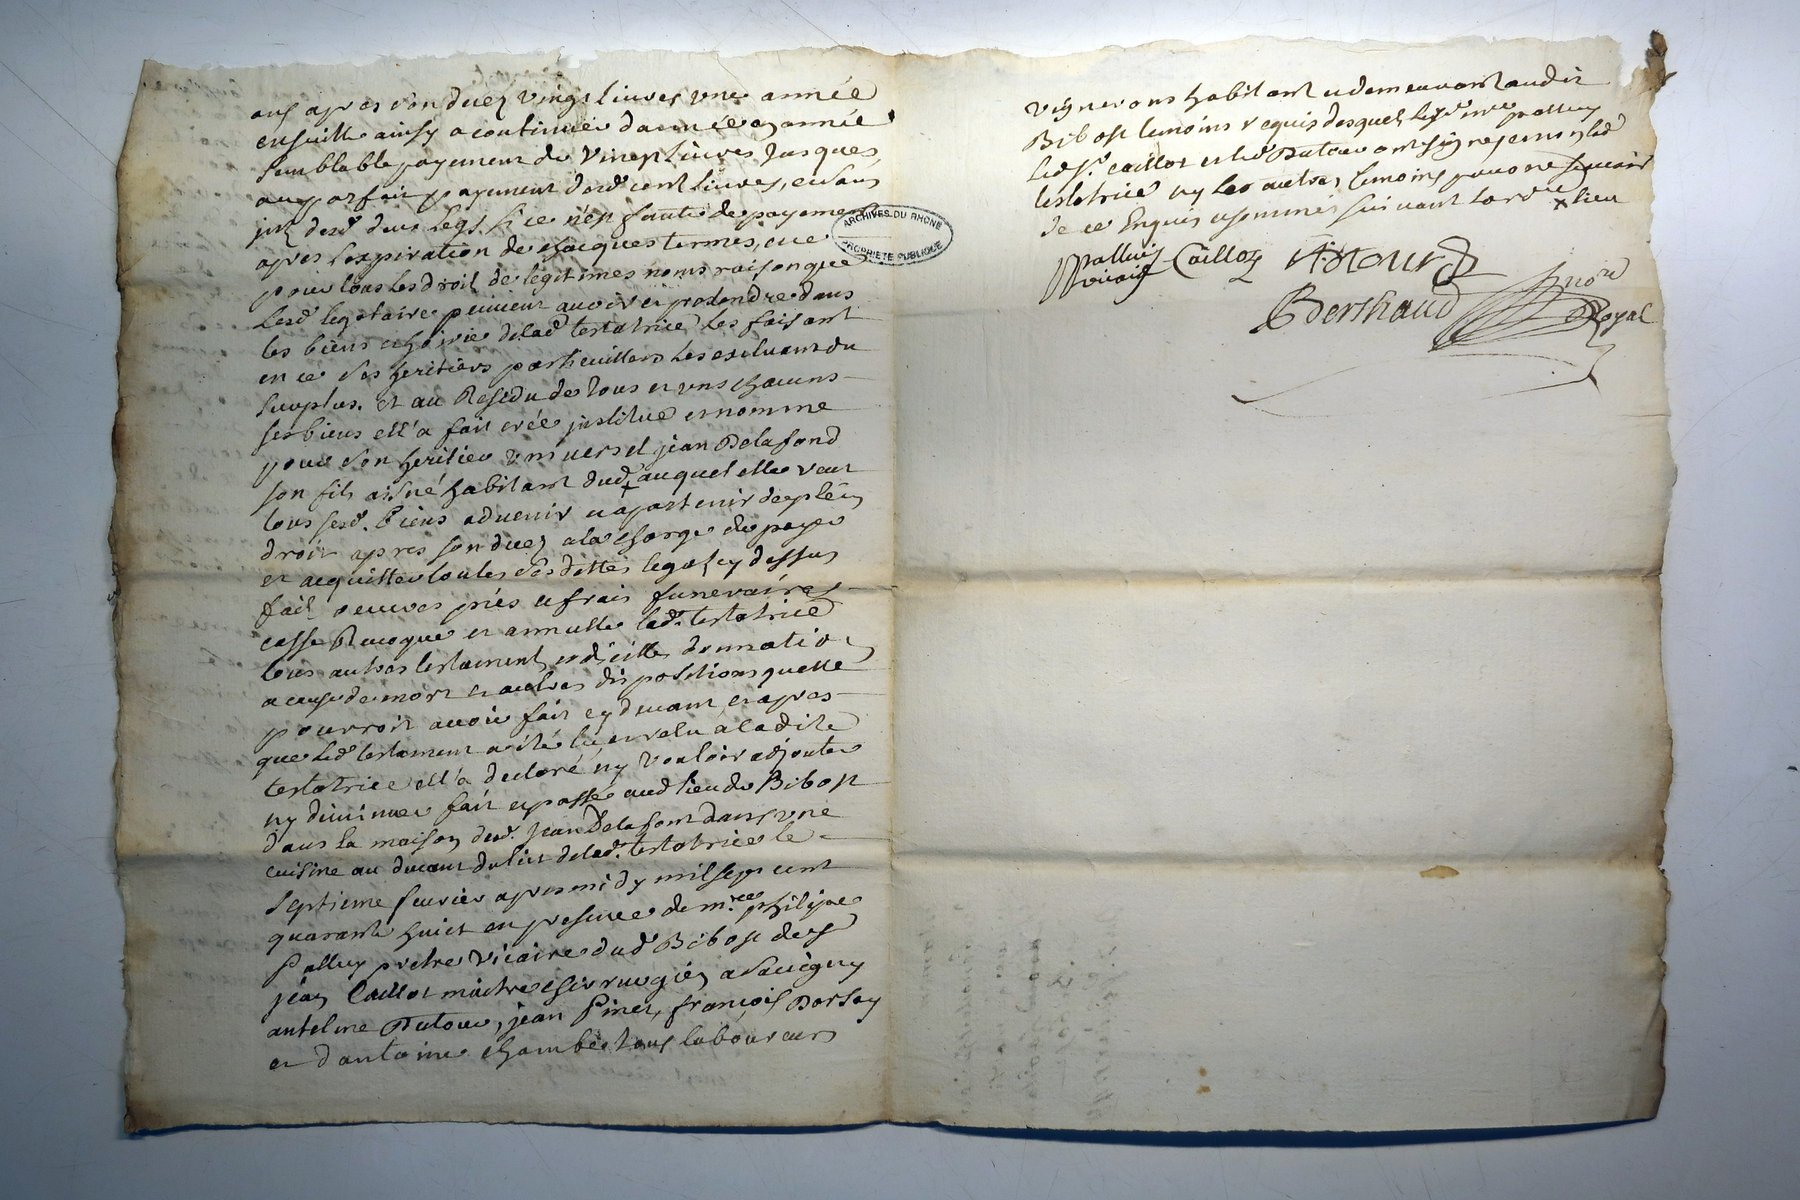 ans apres son decez vingt livres une année
ensuitte ainsy a continuer d'année en année
semblable payement de vingt livres jusques
au parfait payement desd. cent livres, et sans
jnt. desd. deux legs si ce n'est faute de payement
apres l'expiration de chacques termes, ce
pour tous les droit de legitimes noms raison que
lesd. legataire peuvent avoir et pretendre dans
les biens et hoirie de lad. testatrice les faisant
en ce ses heritiers particulliers les excluant du
surplus. et au Residu de tous et uns chacuns
ses biens ell'a fait créé jnstitué et nommé
pour son heritier universel jean Delafond
son fils aisné habitant dud. + auquel elle veut
tous sesd. biens advenir et apartenir de plein
droit apres son decez a la charge de payer
et acquitter toutes ses dettes legaz cy dessus
fait, œuvres pies et frais funeraires
casse Revoque et annulle lad. testatrice
tous autres testament, codicille, donnation
a cause de mort et autres dispositions quelle
pourroit avoir fait cy devant, et apres
que led. testament a été lu et relu a la dite
testatrice ell'a declaré ny vouloir adjouter
ny diminuer fait et passé aud. lieu de Bibost
dans la maison dud. jean Delafont dans une
cuisine au devant du lict de lad. testatrice le
septieme fevrier apres midy mil sept cent
quarante huict en presence de mre. philipe
palluy prêtre vicaire dud. Bibost de s.
jean Caillot maitre chirurgien a Savigny
antelme Dutour, jean Pinet, françois Dorsay
et d'antoine chambe tous laboureurs
vignerons habitant et demeurant audit
Bibost temoins requis desquels led. mre palluy
led. sr. caillot et led. Dutour ont signé et non lad.
testatrice ny les autres temoins pour ne sçavoir
de ce Enquis et sommés suivant l'ord.ce x lieu
palluy Caillot A: Dutour
vicaire
Berthaud nore.
Royal
ARCHIVES DU RHÔNE
PROPRIÉTÉ PUBLIQUE